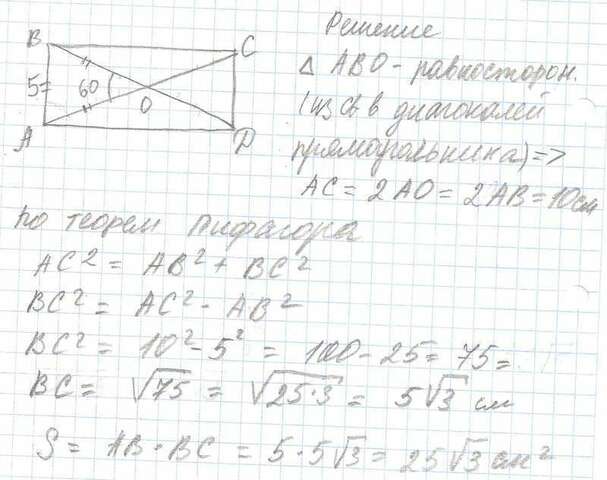 B C
5 60 O
A D
Решение
△ ABO - равносторон.
(из св в диагоналей
прямоугольника) =>
AC = 2AO = 2AB = 10 см
по теорем Пифагора
AC² = AB² + BC²
BC² = AC² - AB²
BC² = 10² - 5² = 100 - 25 = 75 =
BC = √75 = √25·3 = 5√3 см
S = AB · BC = 5 · 5√3 = 25√3 см²